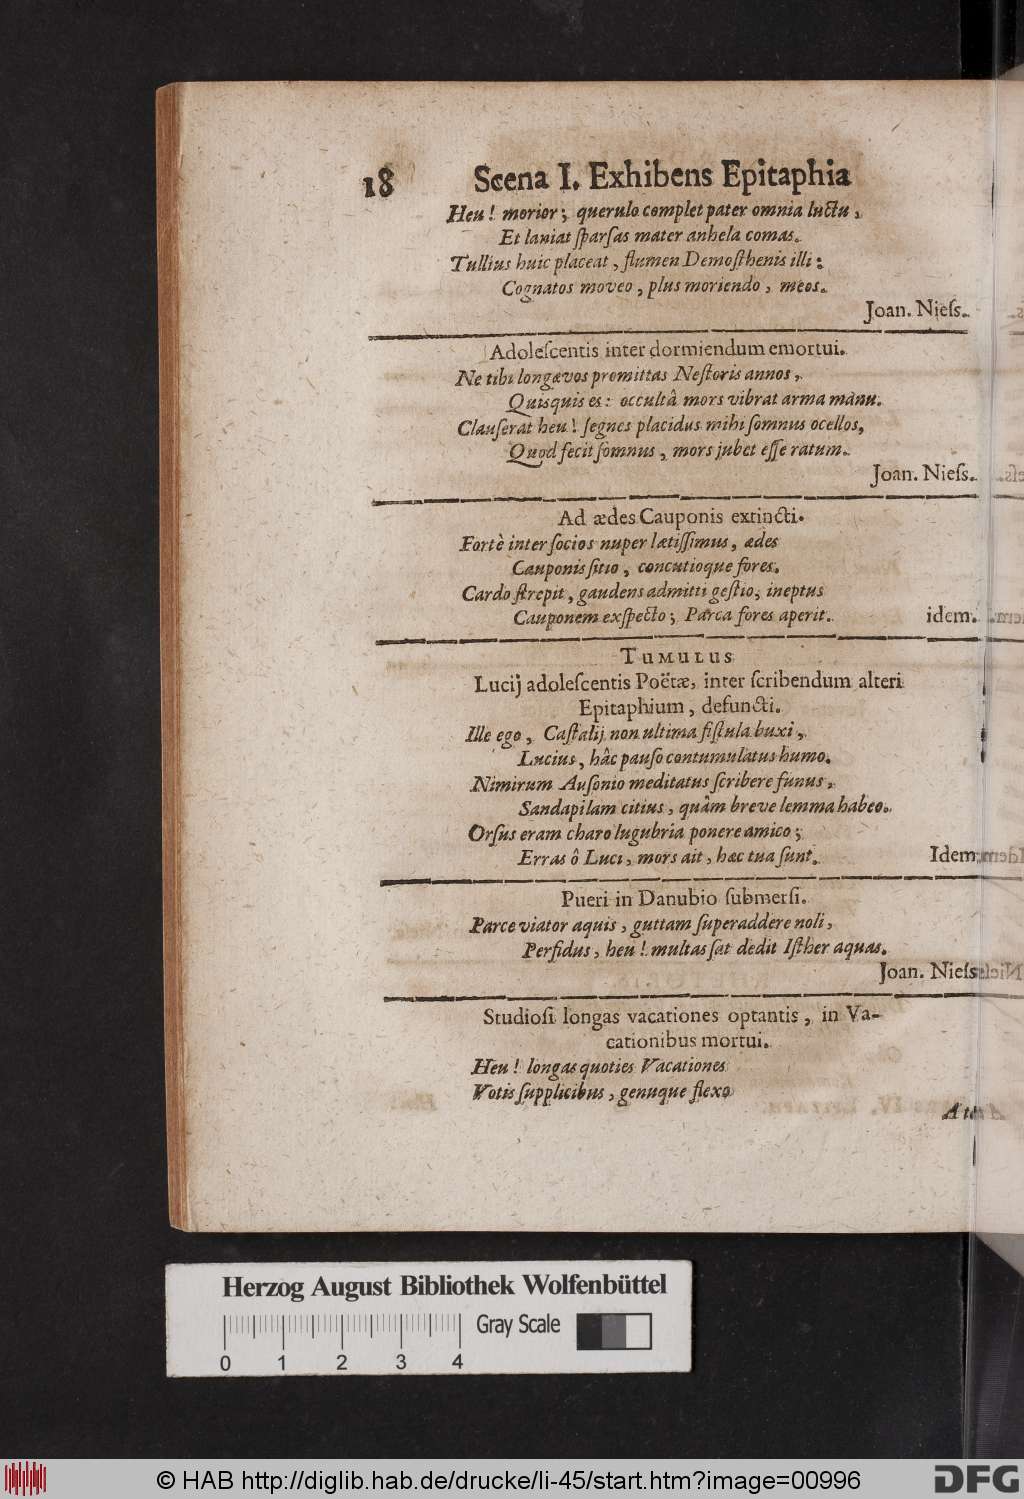 18 Scena I. Exhibens Epitaphia
Heu! morior; querulo complet pater omnia luctu,
Et laniat ſparſas mater anhela comas.
Tullius huic placeat, flumen Demoſthenis illi:
Cognatos moveo, plus moriendo, meos.
Joan. Nieſs.
Adoleſcentis inter dormiendum emortui.
Ne tibi longævos promittas Neſtoris annos,
Quisquis es: occultâ mors vibrat arma manu.
Clauſerat heu! ſegnes placidus mihi ſomnus ocellos,
Quod fecit ſomnus, mors jubet eſſe ratum.
Joan. Nieſs.
Ad ædes Cauponis extincti.
Fortè inter ſocios nuper lætiſſimus, ædes
Cauponis ſitio, concutioque fores.
Cardo ſtrepit, gaudens admitti geſtio, ineptus
Cauponem exſpecto; Parca fores aperit. idem.
TUMULUS
Lucij adoleſcentis Poëtæ, inter ſcribendum alteri
Epitaphium, defuncti.
Ille ego, Caſtalij non ultima fiſtula buxi,
Lucius, hâc pauſo contumulatus humo.
Nimirum Auſonio meditatus ſcribere funus,
Sandapilam citius, quâm breve lemma habeo.
Orſus eram charo lugubria ponere amico;
Erras ô Luci, mors ait, hæc tua ſunt. Idem.
Pueri in Danubio ſubmerſi.
Parce viator aquis, guttam ſuperaddere noli,
Perfidus, heu! multas ſat dedit Iſther aquas.
Joan. Nieſs
Studioſi longas vacationes optantis, in Va-
cationibus mortui.
Heu! longas quoties Vacationes
Votis ſupplicibus, genuque flexo
Herzog August Bibliothek Wolfenbüttel
Gray Scale
0 1 2 3 4
© HAB http://diglib.hab.de/drucke/li-45/start.htm?image=00996
DFG